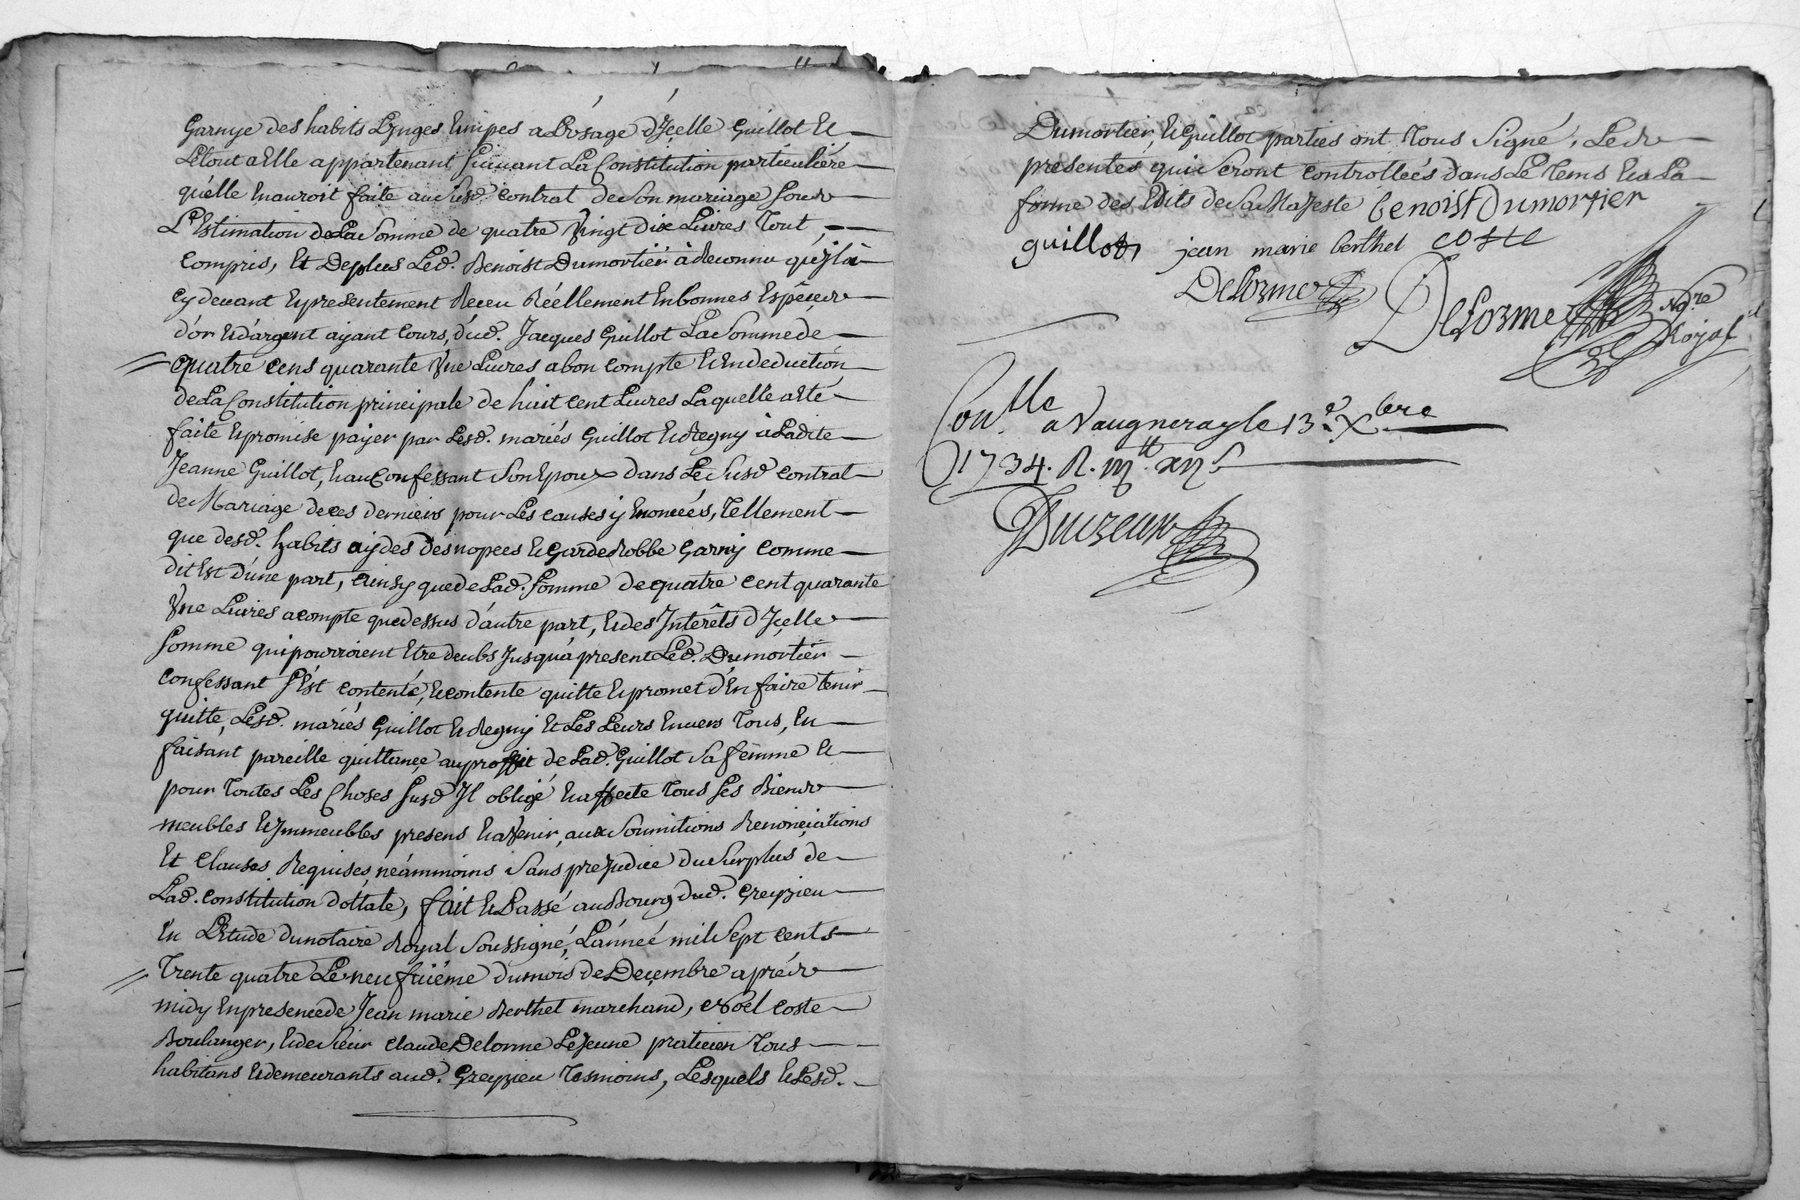 Garnye des habits Lynges Nnipes a L'Usage d'Jcelle Guillot Et
Letout a Elle appartenant suivant La Constitution particuliére
qu'elle En auroit faite au susd. contrat de son mariage sous
L'Estimation de La somme de quatre Vingt dix Livres Tout
compris, Et Deplus Led. Benoist Dumortiér à Reconnu qu'jl à
cy devant Et presentement Receu Réellement En bonnes Espêces
d'or Et d'argent ayant cours, dud. Jacques Guillot La somme de
quatre cens quarante Vne Livres a bon compte Et En deduction
de La Constitution principale de huit cent Livres Laquelle a Eté
faite Et promise payer par Lesd. mariés Guillot Et Regny à Ladite
Jeanne Guillot, Et au Confessant son Epoux dans Le susd contrat
de Mariage de ces derniers pour Les causes ÿ Enoncées, Tellement
que desd. habits aydes des nopces Et Garde Robbe Garny comme
dit Est d'une part, Ainsy que de Lad. somme de quatre cent quarante
Vne Livres a compte que dessus d'autre part, Et des Jnterêts d'Jcelle
somme qui pourroient Etre deubs Jusqu'a present Led. Dumortiér
confessant s'Est contenté, Et contente quitte Et promet d'En faire tenir
quitte, Lesd. mariés Guillot Et Regny Et Les Leurs Envers Tous, En
faisant pareille quittance au proffit de Lad. Guillot sa femme Et
pour Toutes Les Choses susd Jl oblige Et affecte Tous ses Biens
meubles Et Jmmeubles presens Et a Venir, aux soumitions Renonciations
Et Clauses Requises néammoins sans prejudice du surplus de
Lad. constitution dottale, fait Et Passé au Bourg dud. Greyzieu
En L'Etude du notaire Royal soussigné, L'année mil sept cents
Trente quatre Le neufuiéme du mois de Decembre aprés
midy En presence de Jean marie Berthet marchand, Noël coste
Boulanger, Et de sieur Claude Delorme Le Jeune praticien Tous
habitans Et demeurants aud. Greyzieu Tesmoins, Lesquels Et Lesd.
Dumortier, Et Guillot parties ont Tous signé, Les
presentes qui seront controllées dans Le Tems Et a La
forme des Edits de sa Majesté benoist Dumortier
guillot jean marie berthet coste
Delorme Delorme No.re Royal
Con.lle a Vaugneray le 13.e Xbre
1734. R.